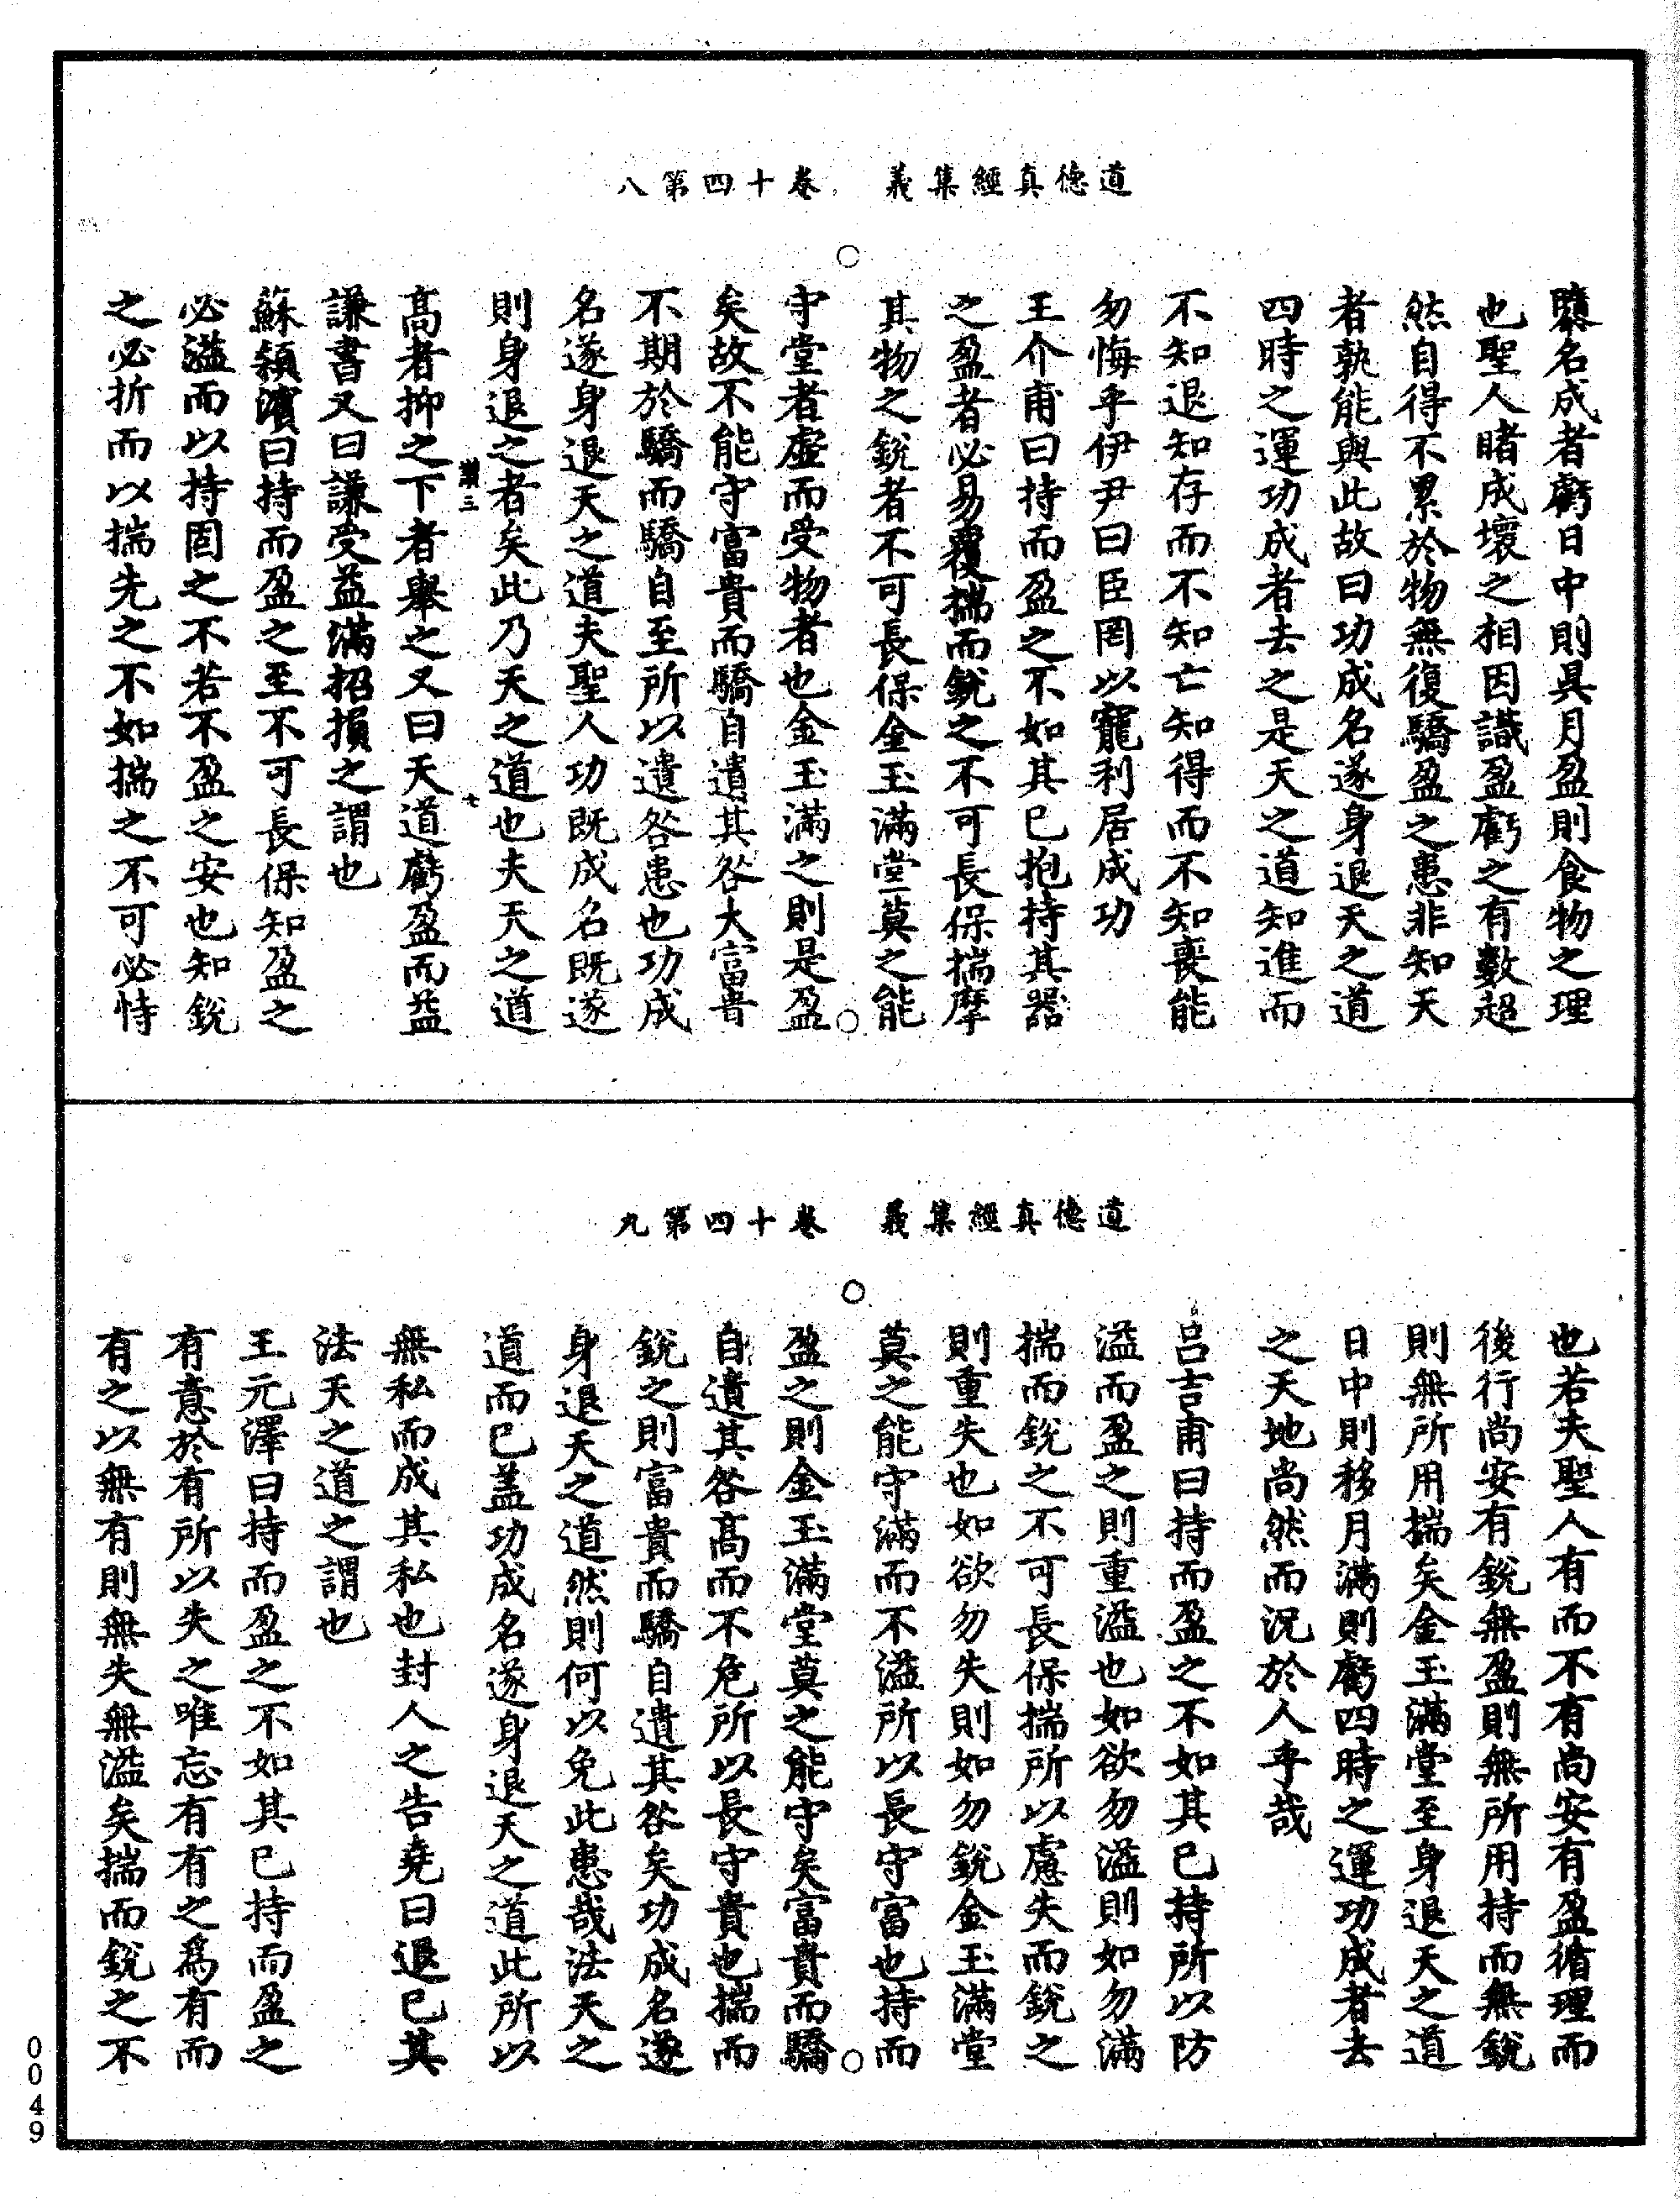 道德真經集義　卷十四第八
隳名成者虧日中則具月盈則食物之理
也聖人睹成壞之相因識盈虧之有數超
然自得不累於物無復驕盈之患非知天
者孰能與此故曰功成名遂身退天之道
四時之運功成者去之是天之道知進而
不知退知存而不知亡知得而不知喪能
勿悔乎伊尹曰臣罔以寵利居成功
王介甫曰持而盈之不如其已抱持其器
之盈者必易覆揣而銳之不可長保揣摩
其物之銳者不可長保金玉滿堂莫之能
守堂者虛而受物者也金玉滿之則是盈
矣故不能守富貴而驕自遺其咎大富貴
不期於驕而驕自至所以遺咎患也功成
名遂身退天之道夫聖人功既成名既遂
則身退之者矣此乃天之道也夫天之道
讃三　七
高者抑之下者舉之又曰天道虧盈而益
謙書又曰謙受益滿招損之謂也
蘇潁濱曰持而盈之至不可長保知盈之
必溢而以持固之不若不盈之安也知銳
之必折而以揣先之不如揣之不可必恃
道德真經集義　卷十四第九
也若夫聖人有而不有尚安有盈循理而
後行尚安有銳無盈則無所用持而無銳
則無所用揣矣金玉滿堂至身退天之道
日中則移月滿則虧四時之運功成者去
之天地尚然而況於人乎哉
呂吉甫曰持而盈之不如其已持所以防
溢而盈之則重溢也如欲勿溢則如勿滿
揣而銳之不可長保揣所以慮失而銳之
則重失也如欲勿失則如勿銳金玉滿堂
莫之能守滿而不溢所以長守富也持而
盈之則金玉滿堂莫之能守矣富貴而驕
自遺其咎高而不危所以長守貴也揣而
銳之則富貴而驕自遺其咎矣功成名遂
身退天之道然則何以免此患哉法天之
道而已盖功成名遂身退天之道此所以
無私而成其私也封人之告堯曰退已其
法天之道之謂也
王元澤曰持而盈之不如其已持而盈之
有意於有所以失之唯忘有有之為有而
有之以無有則無失無溢矣揣而銳之不
0049